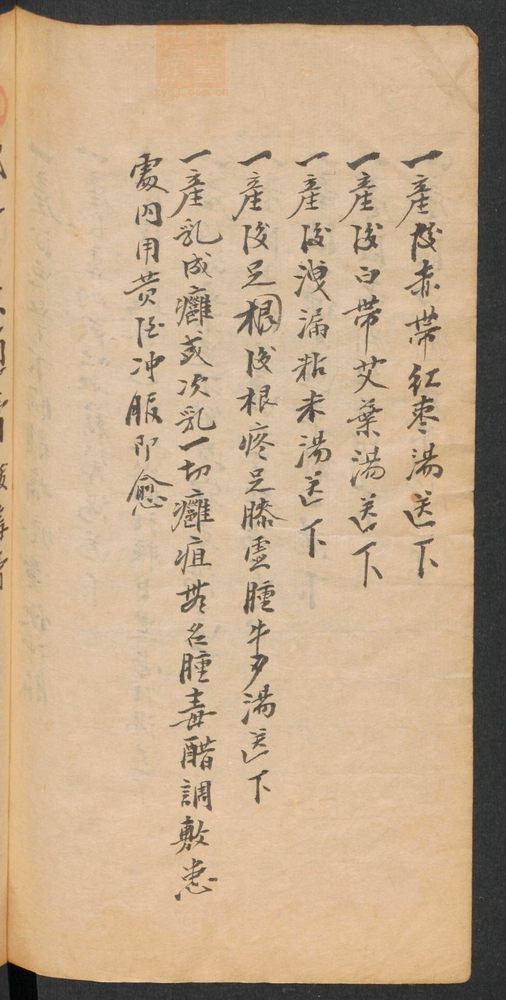 一產後赤帶紅棗湯送下
一產後白帶艾葉湯送下
一產後洩漏粘米湯送下
一產後足根後根疼足膝虛腫牛夕湯送下
一產乳成癰或次乳一切癰疽無名腫毒醋調敷患
處內用黄酒冲服即愈